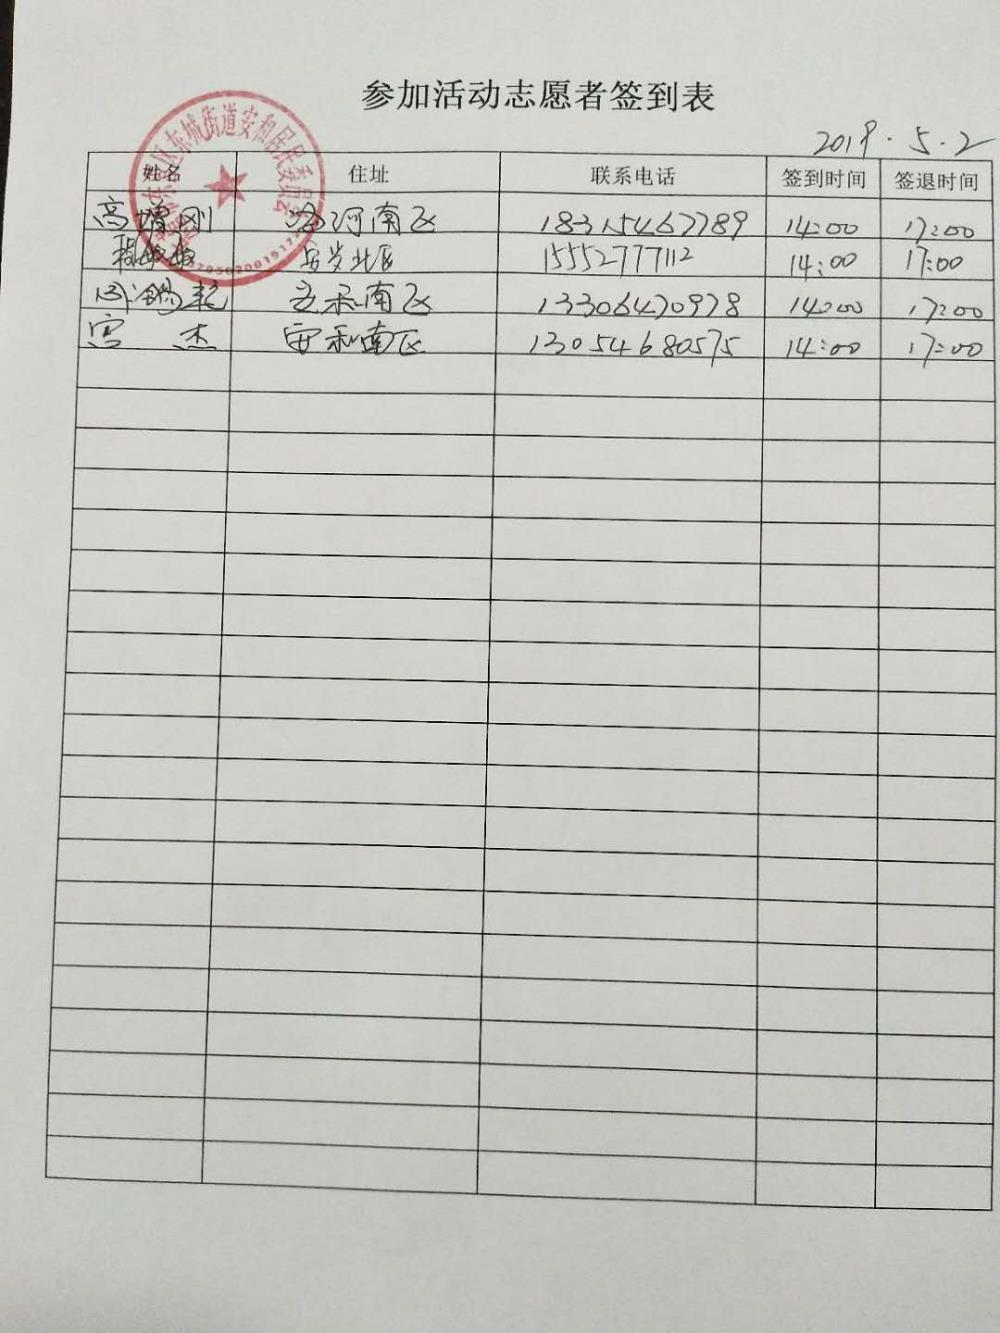 参加活动志愿者签到表
2019.5.2
姓名 住址 联系电话 签到时间 签退时间
高增刚 河南区 18315467789 14:00 17:00
程敏敏 北区 15552777112 14:00 17:00
南区 13306470978 14:00 17:00
宫杰 安和南区 13054680575 14:00 17:00
东城街道安和居民委员会